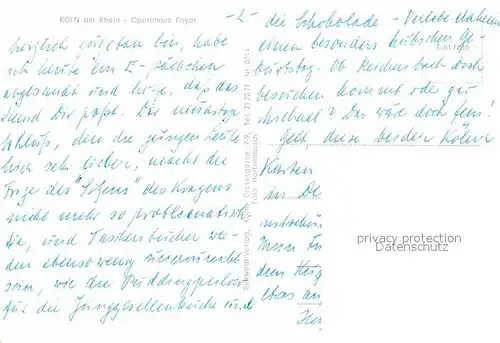 KÖLN am Rhein - Opernhaus Foyer
-2-
herzlich gut tun bin, habe
ich heute ein E-Päckchen
abgesandt und hoffe, daß das
Hemd Dir paßt. Der neuartige
Schluß, den die jungen Leute
hier sehr lieben, macht die
Frage des "Sitzens" des Kragens
nicht mehr so problematisch.
Na, und Taschentücher wer-
den ebensowenig unerwünscht
sein, wie die Puddingpulver
für die Junggesellenküche und
die Schokolade - Verlebe daheim
einen besonders hübschen Ge-
burtstag. Ob Reichenbach doch
besuchen kommt oder gar
Michael? Das wäre doch fein!
Gelt, diese beiden Kölner
Karten
in De
entschu
Mein Fr
dem Herz
etwas an
Her
Echt Foto
Schwarz-Verlag, Köln, Drususgasse 7-9, Tel. 212071 Nr. 0211
Foto: Hartzenbusch
privacy protection
Datenschutz